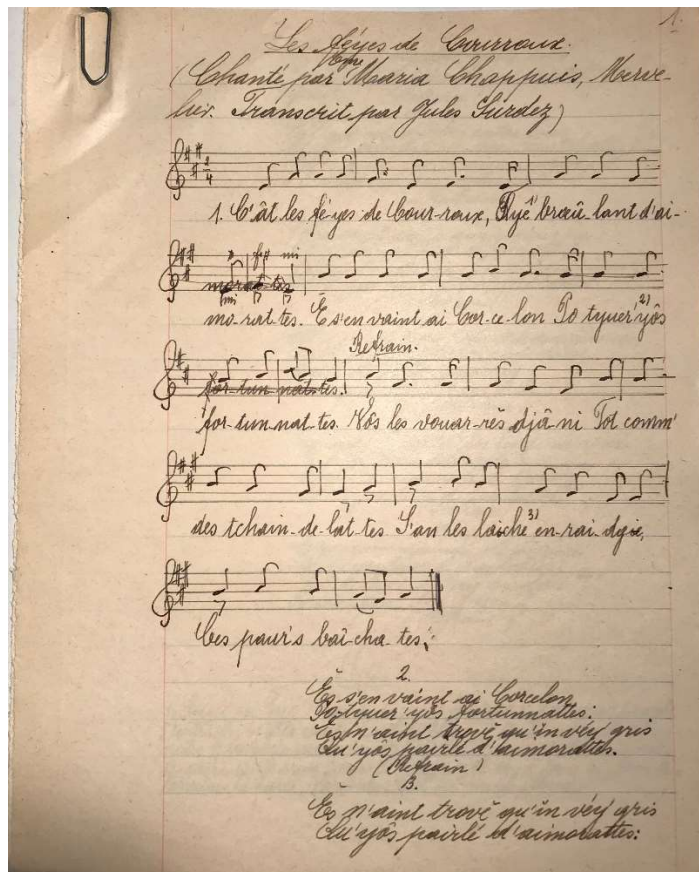 1.
Les féyes de Courroux.
(Chanté par Mme Maria Chappuis, Merve-
lier. Transcrit par Jules Surdez)
1. C'ât les fé-yes de Cour-roux, Ryê breoû-lant d'ai-
mo-rat-tes
fa# mi
mi
mo-rat-tes. Ès s'en vaint ai Cor-ce-lon Po tyuer' yôs 2)
Refrain.
for-tun-nat-tes.
for-tun-nat-tes. Nôs les vouar-rës djâ-ni Tot comm'
des tchain-de-lat-tes S'an les laiche 3) en-rai-dgie,
Ces paur's baî-cha-tes;
2.
Ès s'en vaint ai Corcelon
Po tyuer' yôs fortunnattes:
Ès n'aint trovè qu'în véy' gris
Qu' yôs pairlé d'aimorattes.
(Refrain)
3.
Ès n'aint trovè qu'în véy' gris
Qu' yôs pairlé d'aimorattes: